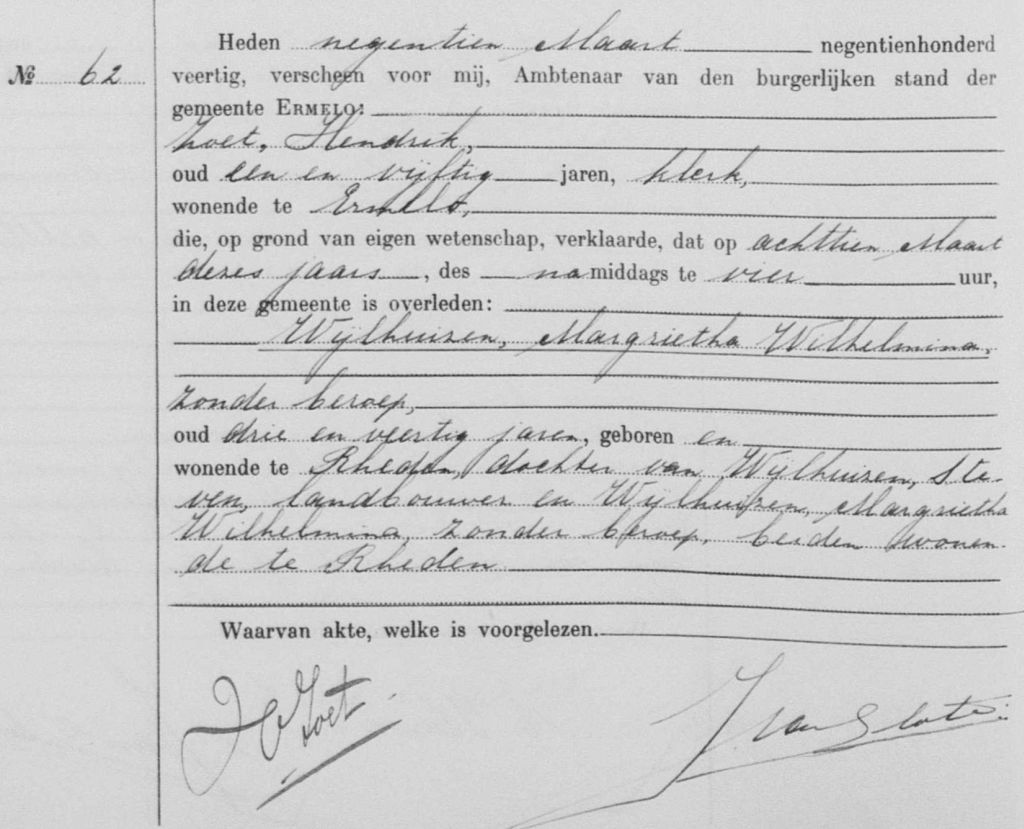 Heden negentien Maart negentienhonderd
№ 62
veertig, verscheen voor mij, Ambtenaar van den burgerlijken stand der
gemeente ERMELO:
Zoet, Hendrik,
oud een en vijftig jaren, klerk,
wonende te Ermelo,
die, op grond van eigen wetenschap, verklaarde, dat op achttien Maart
dezes jaars, des namiddags te vier uur,
in deze gemeente is overleden:
Wijlhuizen, Margrietha Wilhelmina,
zonder beroep,
oud drie en veertig jaren, geboren en
wonende te Rheden, dochter van Wijlhuizen, Ste-
ven, landbouwer en Wijlhuizen, Margrietha
Wilhelmina, zonder beroep, beiden wonen-
de te Rheden
Waarvan akte, welke is voorgelezen.
H Zoet